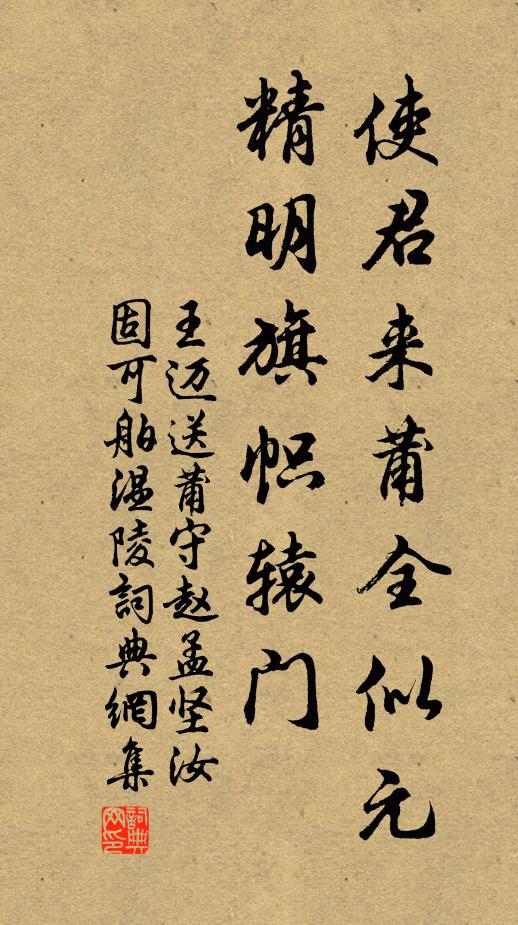 使君来莆全似元
精明旗帜辕门
王迈送莆守赵孟坚汝
固可舶温陵詞典網集
詞典
网印